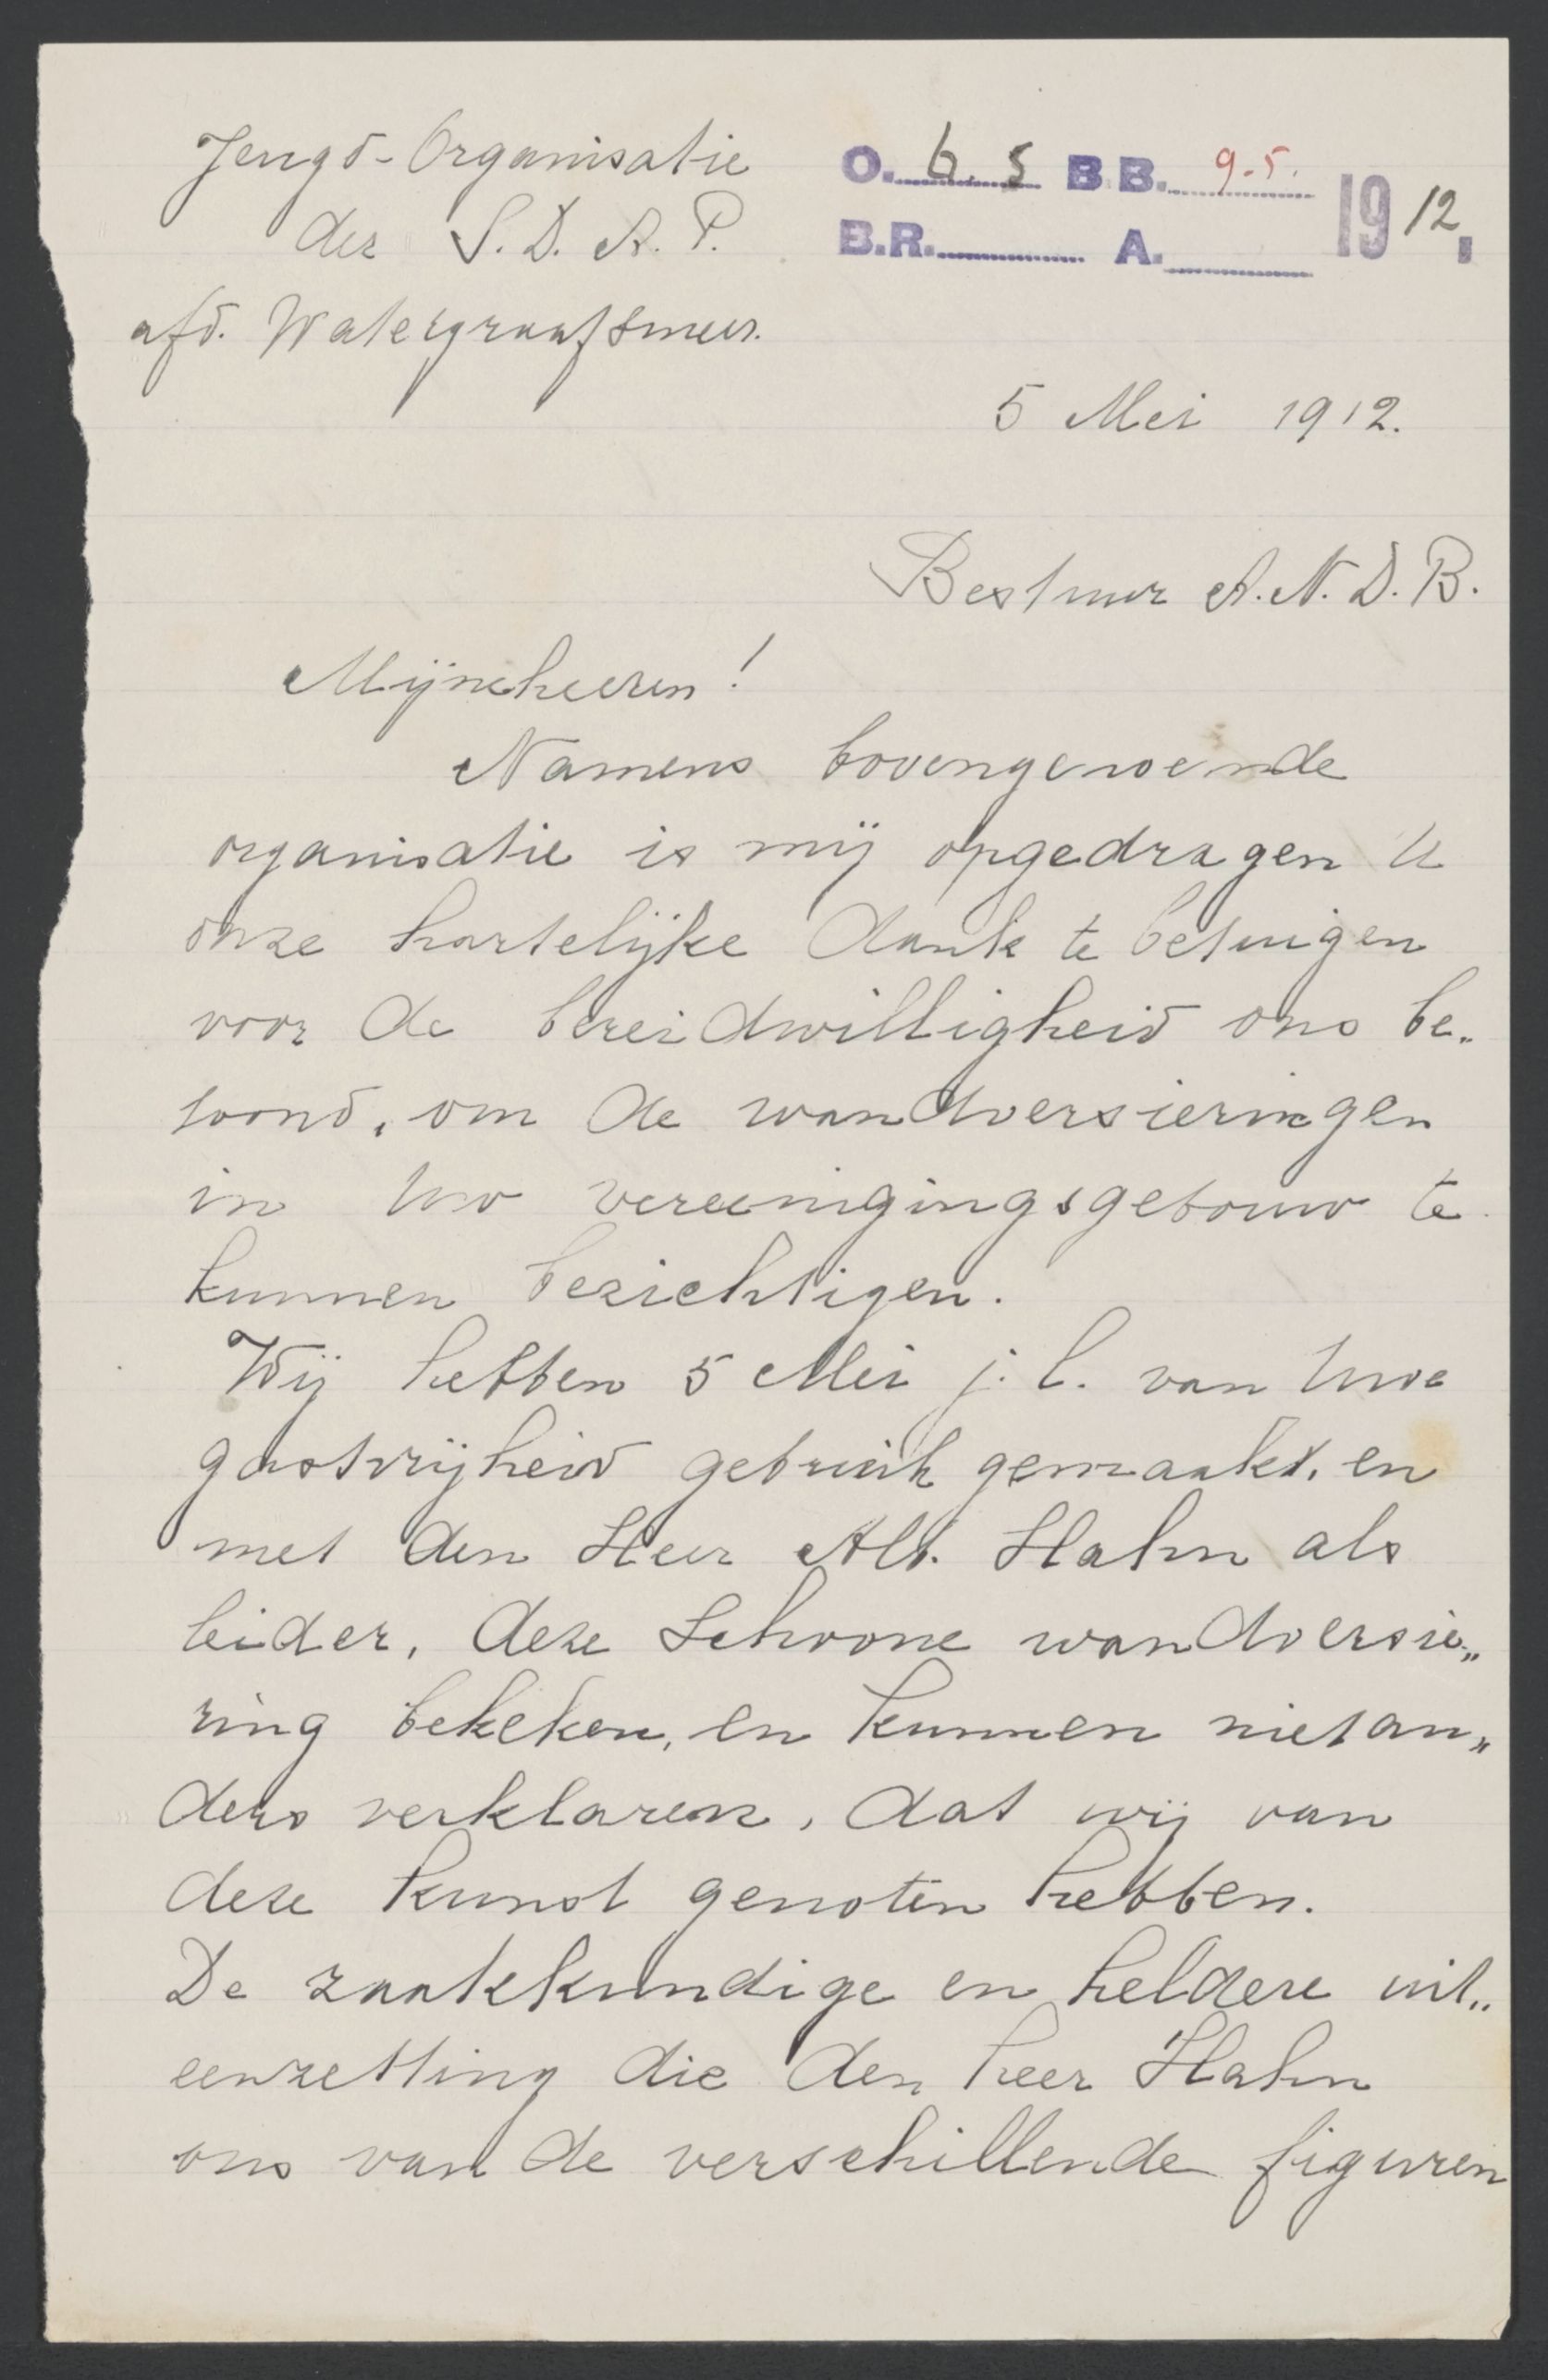 Jeugd-Organisatie
der S.D.A.P.
afd. Watergraafsmeer.
O. 6. 5 B.B. 9.5. 1912,
B.R. A.
5 Mei 1912.
Bestuur A.N.D.B.
Mijneheeren!
Namens bovengenoemde
organisatie is mij opgedragen U
onze hartelijke dank te betuigen
voor de bereidwilligheid ons be„
toond, om de wandversieringen
in Uw vereenigingsgebouw te
kunnen bezichtigen.
Wij hebben 5 Mei j.l. van Uwe
gastvrijheid gebruik gemaakt, en
met den Heer Alb. Hahn als
leider, deze schoone wandversie„
ring bekeken, en kunnen niet an„
ders verklaren, dat wij van
deze kunst genoten hebben.
De zaakkundige en heldere uit„
eenzetting die den heer Hahn
ons van de verschillende figuren